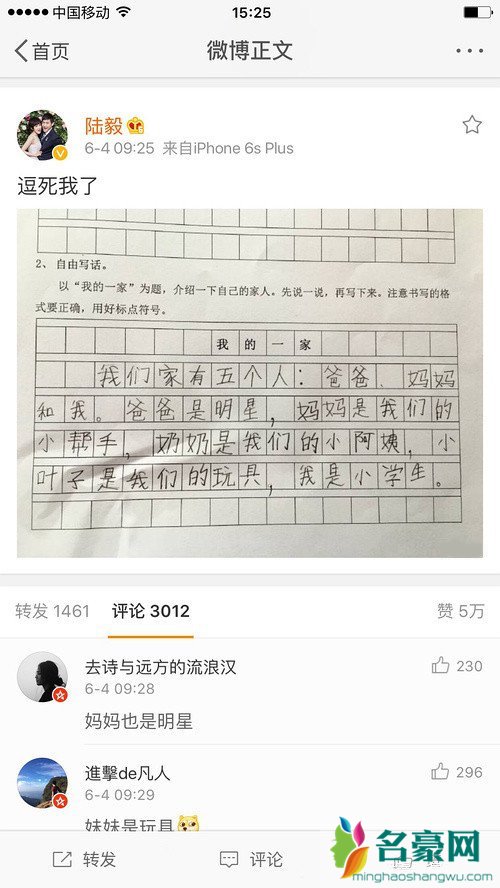 中国移动 15:25
首页 微博正文
陆毅
6-4 09:25 来自iPhone 6s Plus
逗死我了
2、自由写话。
以“我的一家”为题,介绍一下自己的家人。先说一说,再写下来。注意书写的格
式要正确,用好标点符号。
我的一家
我们家有五个人:爸爸、妈妈
和我。爸爸是明星,妈妈是我们的
小帮手,奶奶是我们的小阿姨,小
叶子是我们的玩具,我是小学生。
转发 1461 评论 3012 赞 5万
去诗与远方的流浪汉 230
6-4 09:28
妈妈也是明星
進擊de凡人 296
6-4 09:29
妹妹是玩具
转发 评论
名豪网
minghaoshangwu.com